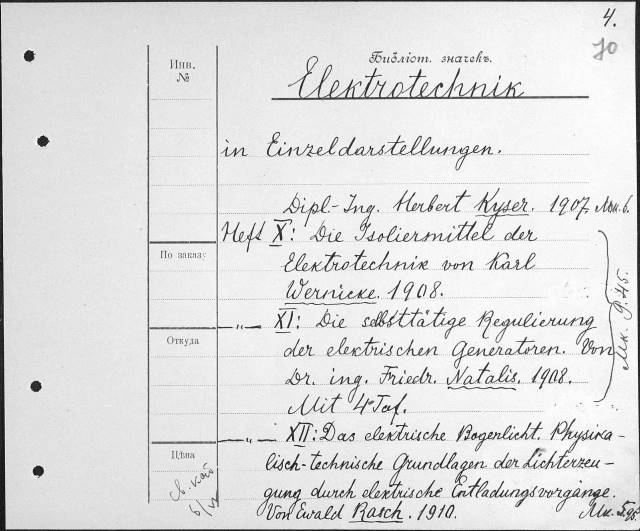 4.
70
Библіот. значекъ.
Инв.
№
Elektrotechnik
in Einzeldarstellungen.
Dipl.-Ing. Herbert Kyser. 1907. Мк. 6.
Heft X: Die Isoliermittel der
По заказу
Elektrotechnik von Karl
Wernicke. 1908.
Мк. 9.45.
—„— XI: Die selbsttätige Regulierung
Откуда
der elektrischen Generatoren. Von
Dr. ing. Friedr. Natalis. 1908.
Mit 4 Taf.
—„— XII: Das elektrische Bogenlicht. Physika-
Цѣна
lisch-technische Grundlagen der Lichterzeu-
gung durch elektrische Entladungsvorgänge.
Von Ewald Rasch. 1910. Мк.